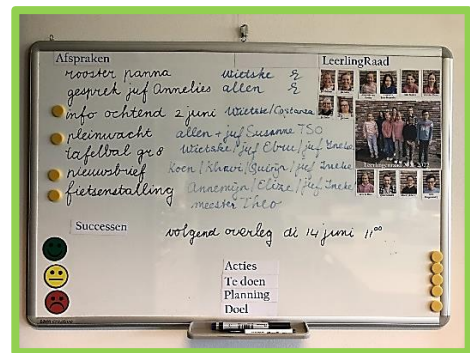 Afspraken
LeerlingRaad
rooster panna wietske
gesprek juf Annelies allen
info ochtend 2 juni Wietske/Constanza
pleinwacht allen + juf Susanne TSO
tafelbal gr 8 Wietske/juf Ebru/juf Ineke
nieuwsbrief Koen/Khavi/Quirijn/juf Ineke
fietsenstalling Annemijn/Elize/juf Ineke
meester Theo
Successen
volgend overleg di 14 juni 11⁰⁰
Acties
Te doen
Planning
Doel